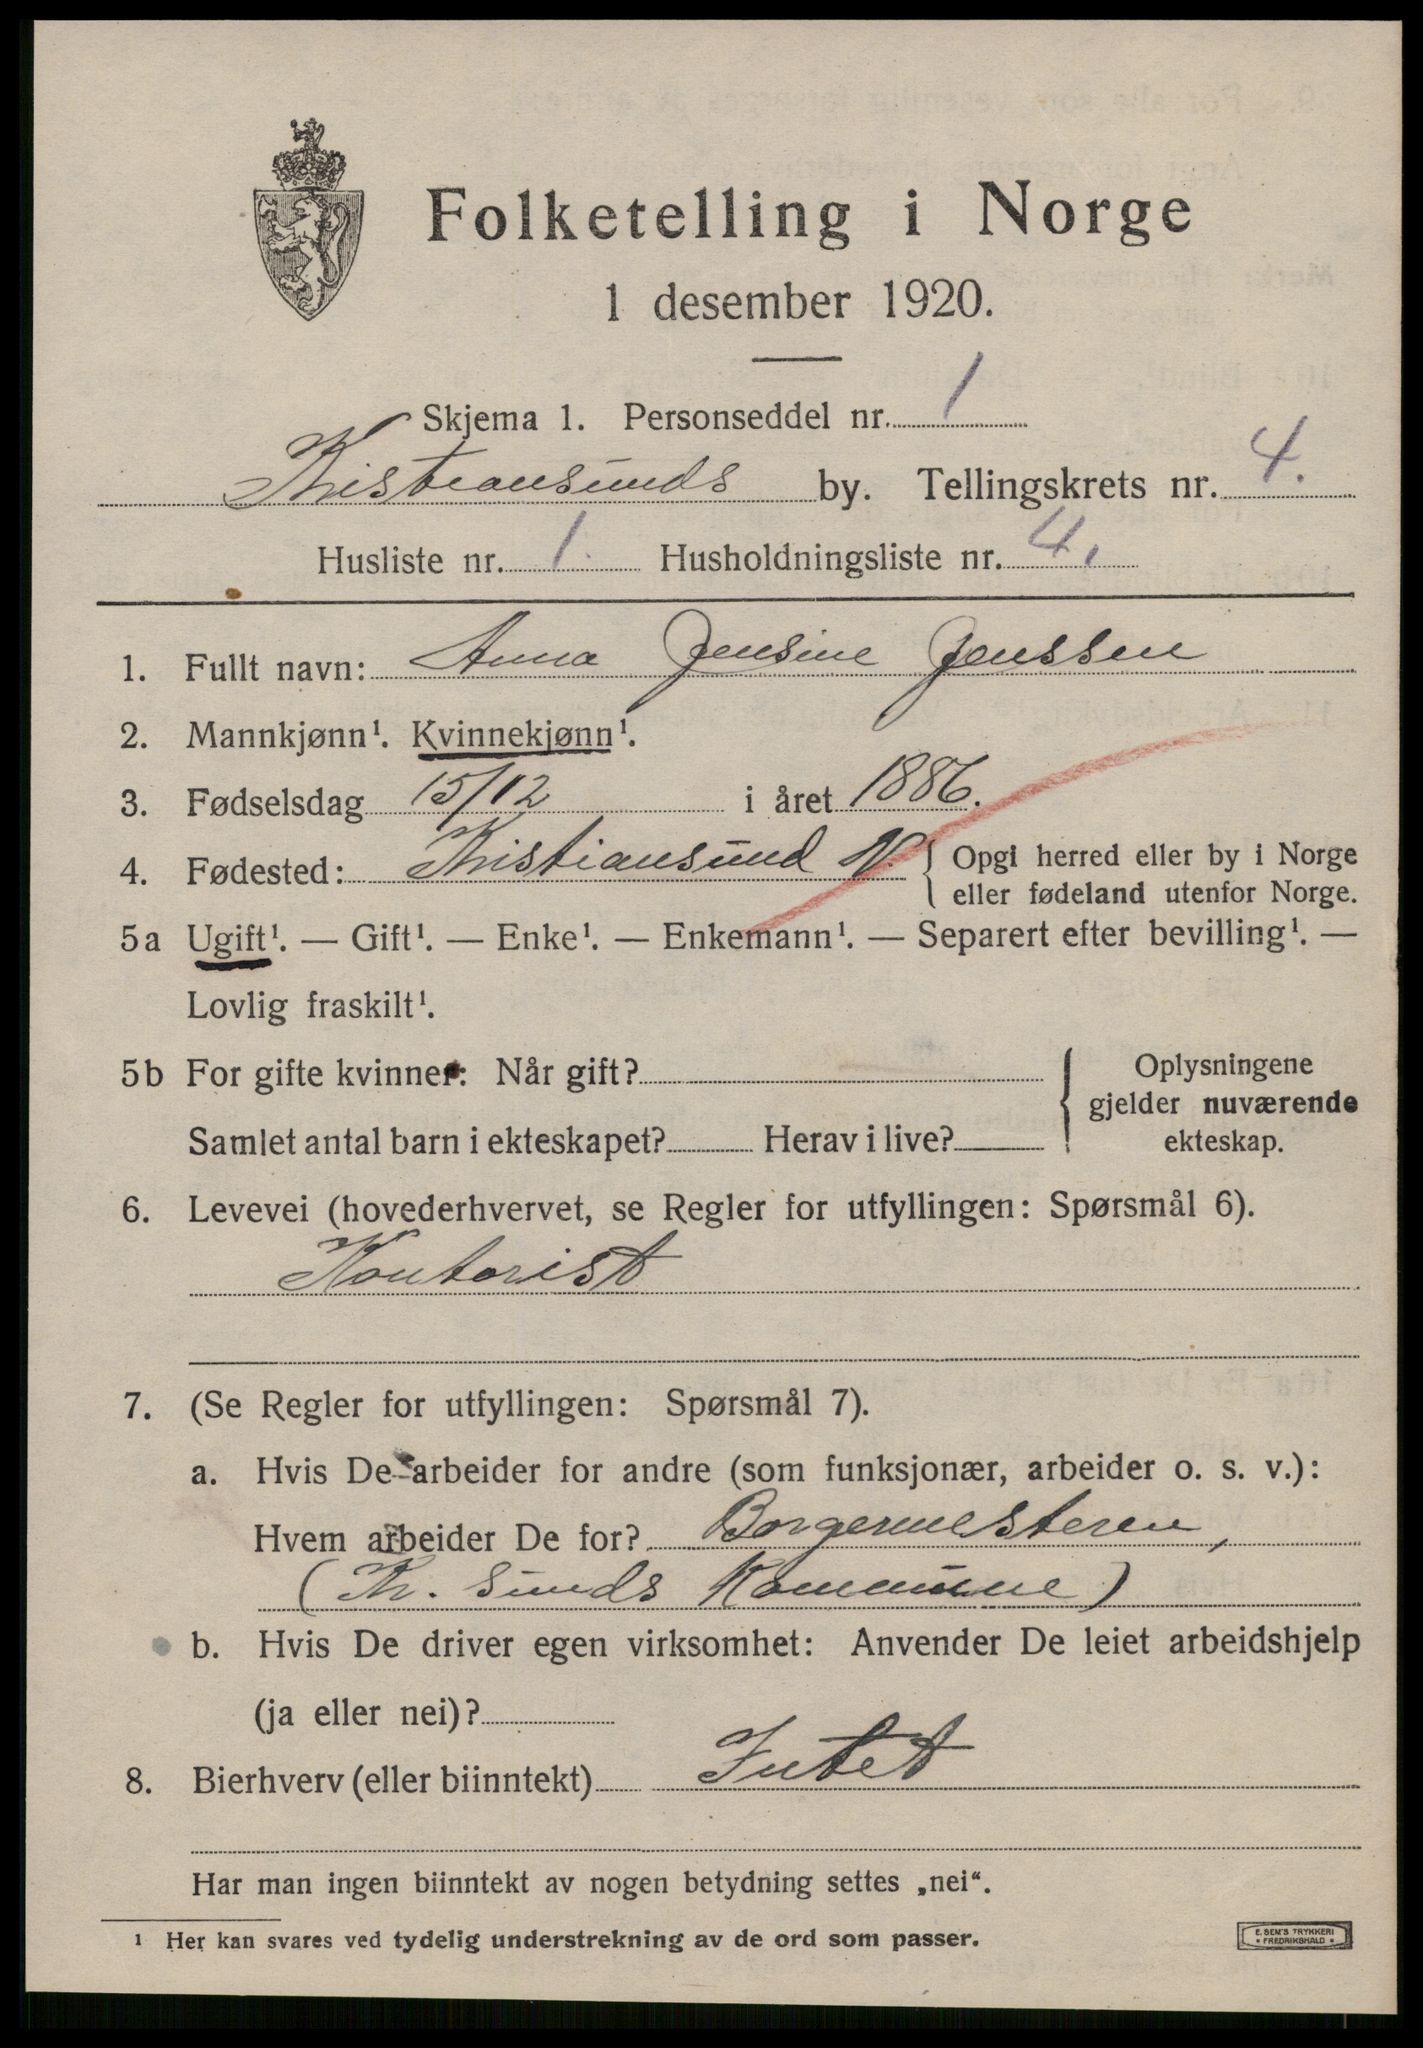 Folketelling i Norge
1 desember 1920.
Skjema 1. Personseddel nr. 1
Kristiansunds by. Tellingskrets nr. 4.
Husliste nr. 1. Husholdningsliste nr. 4.
1. Fullt navn: Anna Jensine Jenssen
2. Mannkjønn¹. Kvinnekjønn¹.
3. Fødselsdag 15/12 i året 1886.
4. Fødested: Kristiansund N. { Opgi herred eller by i Norge
eller fødeland utenfor Norge.
5a Ugift¹. — Gift¹. — Enke¹. — Enkemann¹. — Separert efter bevilling¹. —
Lovlig fraskilt¹.
5b For gifte kvinner: Når gift?
Samlet antal barn i ekteskapet? Herav i live?
{ Oplysningene
gjelder nuværende
ekteskap.
6. Levevei (hovederhvervet, se Regler for utfyllingen: Spørsmål 6).
Kontorist
7. (Se Regler for utfyllingen: Spørsmål 7).
a. Hvis De arbeider for andre (som funksjonær, arbeider o. s. v.):
Hvem arbeider De for? Borgermesteren,
(Kr. sunds Kommune)
b. Hvis De driver egen virksomhet: Anvender De leiet arbeidshjelp
(ja eller nei)?
8. Bierhverv (eller biinntekt) Intet
Har man ingen biinntekt av nogen betydning settes „nei“.
¹ Her kan svares ved tydelig understrekning av de ord som passer.
E. SEM'S TRYKKERI
* FREDRIKSHALD *